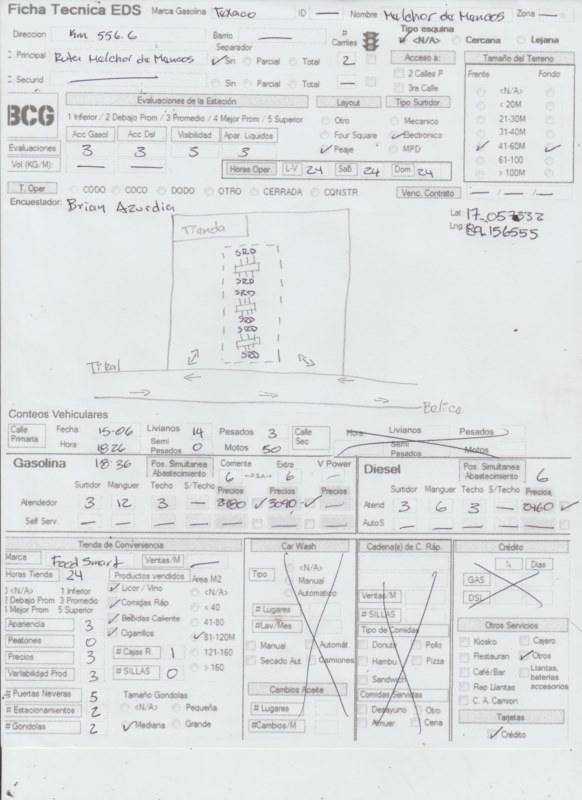 Ficha Tecnica EDS Marca Gasolina Texaco ID — Nombre Melchor de Mencos Zona —
Direccion Km 556.6 Barrio — # Carriles Tipo esquina
Separador ✓ <N/A> Cercana Lejana
Principal Ruta Melchor de Mencos ✓ Sin Parcial Total 2 Acceso a: Tamaño del Terreno
Secund — Sin Parcial Total — 2 Calles P Frente Fondo
3ra Calle <N/A>
BCG Evaluaciones de la Estación Layout Tipo Surtidor < 20M
1 Inferior / 2 Debajo Prom / 3 Promedio / 4 Mejor Prom / 5 Superior Otro Mecanico 21-30M
Acc Gasol Acc Dsl Visibilidad Apar. Liquidos Four Square ✓ Electronico 31-40M
Evaluaciones 3 3 3 3 ✓ Peaje MPD ✓ 41-60M ✓
Vol (KG/M) — — 61-100
Horas Oper. L-V 24 Sab 24 Dom 24 > 100M
T. Oper CODO COCO DODO OTRO CERRADA CONSTR. Venc. Contrato — / — / —
Encuestador: Brian Azurdia
Lat
Lng 89.156555
Tienda
SRD
SRD
SRD
SRD
SRD
SRD
Tikal
Belice
Conteos Vehiculares
Calle Primaria Fecha 15-06 Livianos 14 Pesados 3 Calle Sec Hora Livianos Pesados
Hora 18:26 Semi Pesados 0 Motos 50 Semi Pesados Motos
Gasolina 18:36 Pos. Simultanea Abastecimiento Corriente 6 Extra 6 V Power Diesel Pos. Simultanea Abastecimiento 6
Surtidor Manguer Techo S/Techo Precios Precios Precios Surtidor Manguer Techo S/Techo Precios
Atendedor 3 12 3 — ✓ ✓ — Atend 3 6 3 — ✓
Self Serv. — — — — — — — Auto S — — — — —
Tienda de Conversiencia Car Wash Cadena(s) de C. Ráp. Crédito
Marca Food Smart Ventas/M — <N/A> ½ Dias
Horas Tienda 24 Productos vendidos Area M2 Tipo Manual GAS
<N/A> 1 Inferior ✓ Licor / Vino <N/A> Automatico Ventas/M DSL
2 Debajo Prom 3 Promedio ✓ Comidas Ráp < 40 # Lugares # SILLAS
4 Mejor Prom 5 Superior ✓ Bebidas Caliente 41-80 # Lav/Mes Tipo de Comidas Otros Servicios
Apariencia 3 ✓ Cigarrillos ✓ 81-120M Manual Automát. Donuts Pollo Kiosko Cajero
Peatones 0 # Cajas R 1 121-160 Secado Aut. Camiones Hambu Pizza Restauran ✓ Otros
Precios 3 # SILLAS 0 > 160 Sandwich Café/Bar Llantas, baterias accesorios
Variabilidad Prod 3 Cambios Aceite Comidas Servidas Rep Llantas
# Puertas Neveras 5 Tamaño Gondolas # Lugares Desayuno Otro C. A. Camion
# Estacionamientos 2 <N/A> Pequeña # Cambios/M Almuer Cena Tarjetas
# Gondolas 2 ✓ Mediana Grande ✓ Crédito